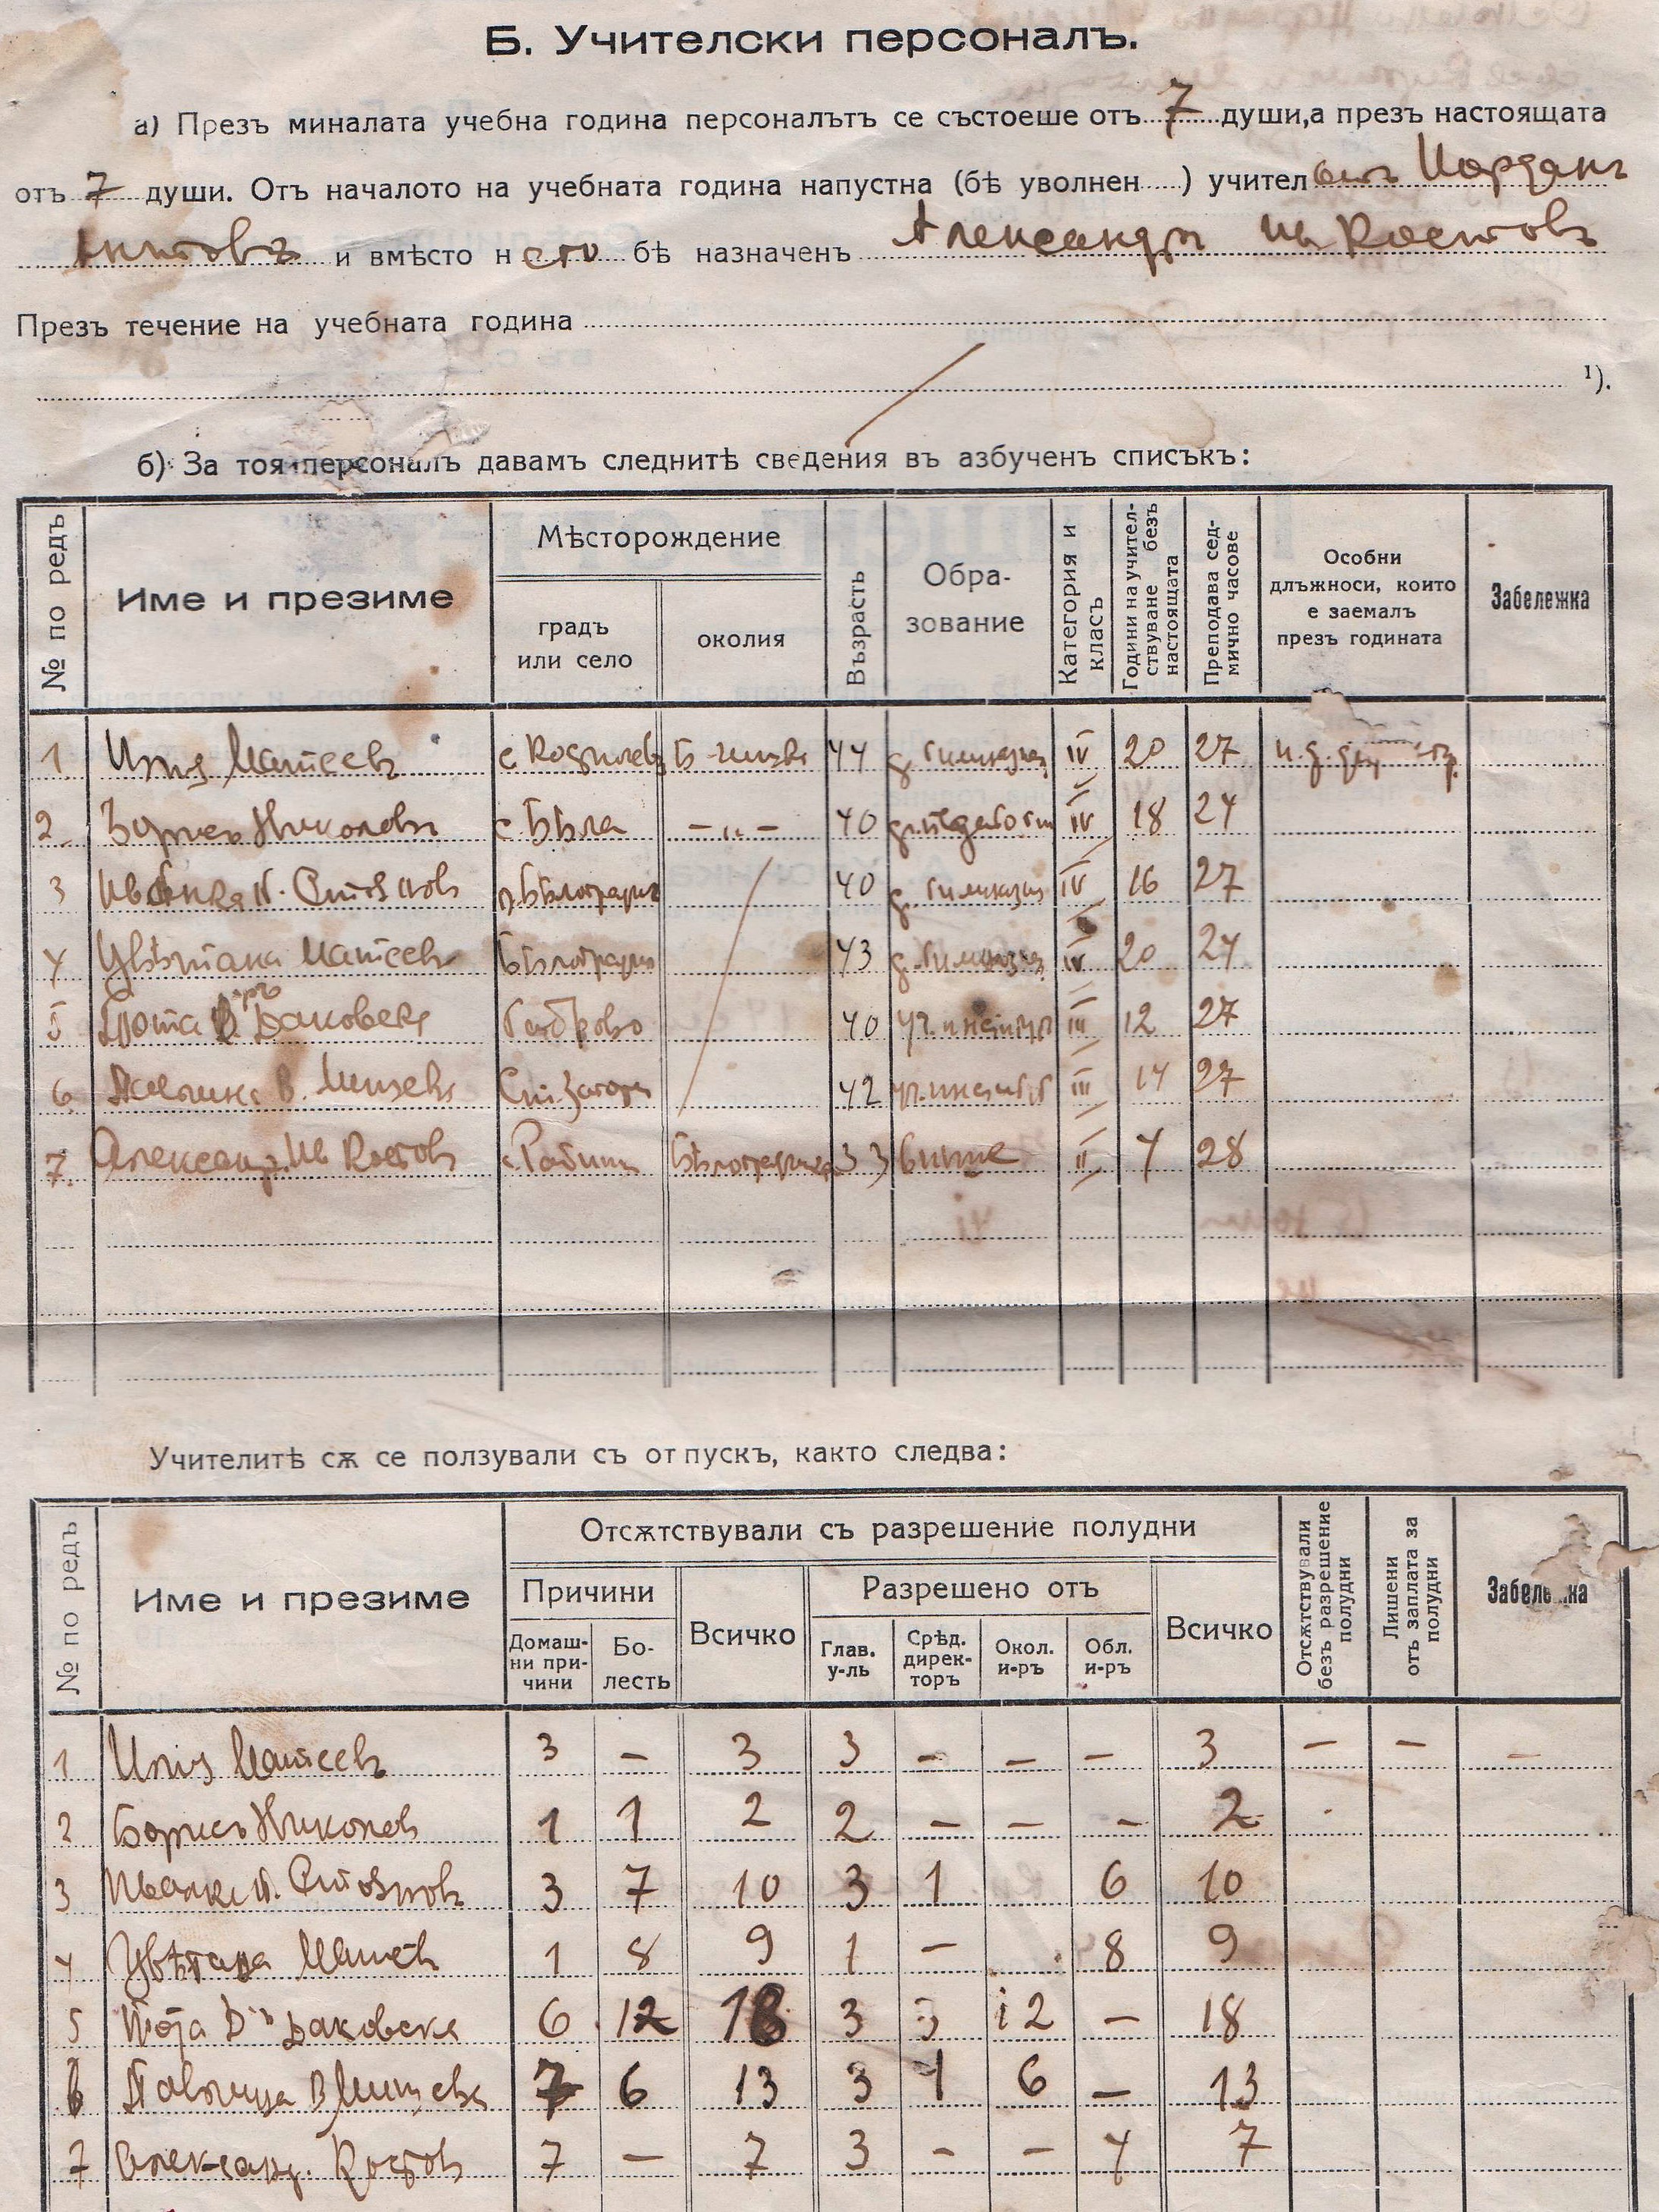 Б. Учителски персоналъ.
а) Презъ миналата учебна година персоналътъ се състоеше отъ 7 души, а презъ настоящата
отъ 7 души. Отъ началото на учебната година напустна (бѣ уволнен.....) учител Йорданъ
и вмѣсто н его бѣ назначенъ Александръ Ив Костовъ
Презъ течение на учебната година
¹).
б) За тоя персоналъ давамъ следнитѣ сведения въ азбученъ списъкъ:
№ по редъ Име и презиме Мѣсторождение градъ или село околия Възрасть Образование Категория и класъ Години на учителствуване безъ настоящата Преподава седмично часове Особни длъжноси, които е заемалъ презъ годината Забележка
1 Илия Матеевъ 44 д. гимназия IV 20 27
2 Борисъ Николовъ с. Бѣла - „ - 40 д. педагогич IV 18 24
3 Иванка П. Стоянов 40 д. гимназия IV 16 27
4 Цвѣтана Матеева Бѣлоградч 43 д. гимназия IV 20 24
5 Даковска Габрово 40 III 12 27
6 В. Мицева Ст. Загора 42 III 14 27
7. Александ. Ив Костовъ с. Рабиша Бѣлоградчик 33 висше II 4 28
Учителитѣ сѫ се ползували съ отпускъ, както следва:
№ по редъ Име и презиме Отсѫтствували съ разрешение полудни Причини Домашни причини Болесть Всичко Разрешено отъ Глав. у-ль Срѣд. директоръ Окол. и-ръ Обл. и-ръ Всичко Отсѫтствували безъ разрешение полудни Лишени отъ заплата за полудни Забележка
1 Илия Матеевъ 3 — 3 3 — — — 3 — — —
2 Борисъ Николов 1 1 2 2 — — — 2
3 Иванка П. Стояновъ 3 7 10 3 1 6 10
4 Цвѣтана Матеев 1 8 9 1 — 8 9
5 Даковска 6 12 18 3 3 12 — 18
6 В Мицева 7 6 13 3 1 6 — 13
7 Александ. Костовъ 7 — 7 3 — — 4 7